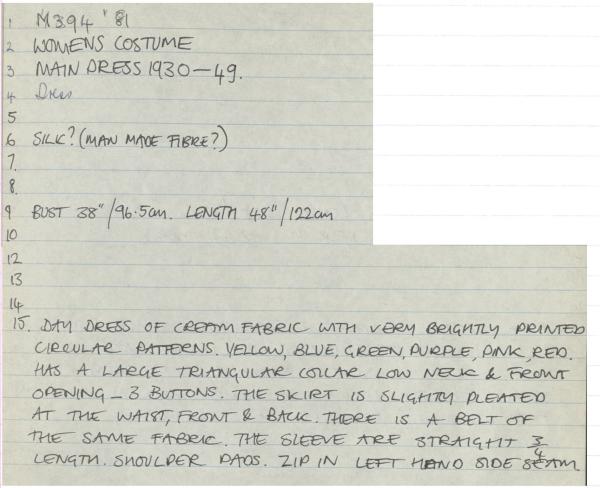 1 M394 '81
2 WOMENS COSTUME
3 MAIN DRESS 1930-49.
4 Dress
5
6 SILK? (MAN MADE FIBRE?)
7.
8.
9 BUST 38"/96.5cm. LENGTH 48"/122cm
10
12
13
14
15. DAY DRESS OF CREAM FABRIC WITH VERY BRIGHTLY PRINTED
CIRCULAR PATTERNS. YELLOW, BLUE, GREEN, PURPLE, PINK, RED.
HAS A LARGE TRIANGULAR COLLAR LOW NECK & FRONT
OPENING - 3 BUTTONS. THE SKIRT IS SLIGHTLY PLEATED
AT THE WAIST, FRONT & BACK. THERE IS A BELT OF
THE SAME FABRIC. THE SLEEVE ARE STRAIGHT 3/4
LENGTH. SHOULDER PADS. ZIP IN LEFT HAND SIDE SEAM